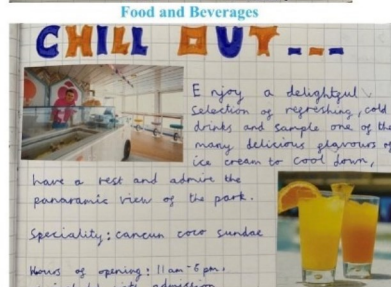 Food and Beverages
CHILL OUT...
Enjoy a delightful
selection of refreshing, cold
drinks and sample one of the
many delicious flavours of
ice cream to cool down,
have a rest and admire the
panaramic view of the park.
Speciality: cancun coco sundae
Hours of opening: 11am-6pm.